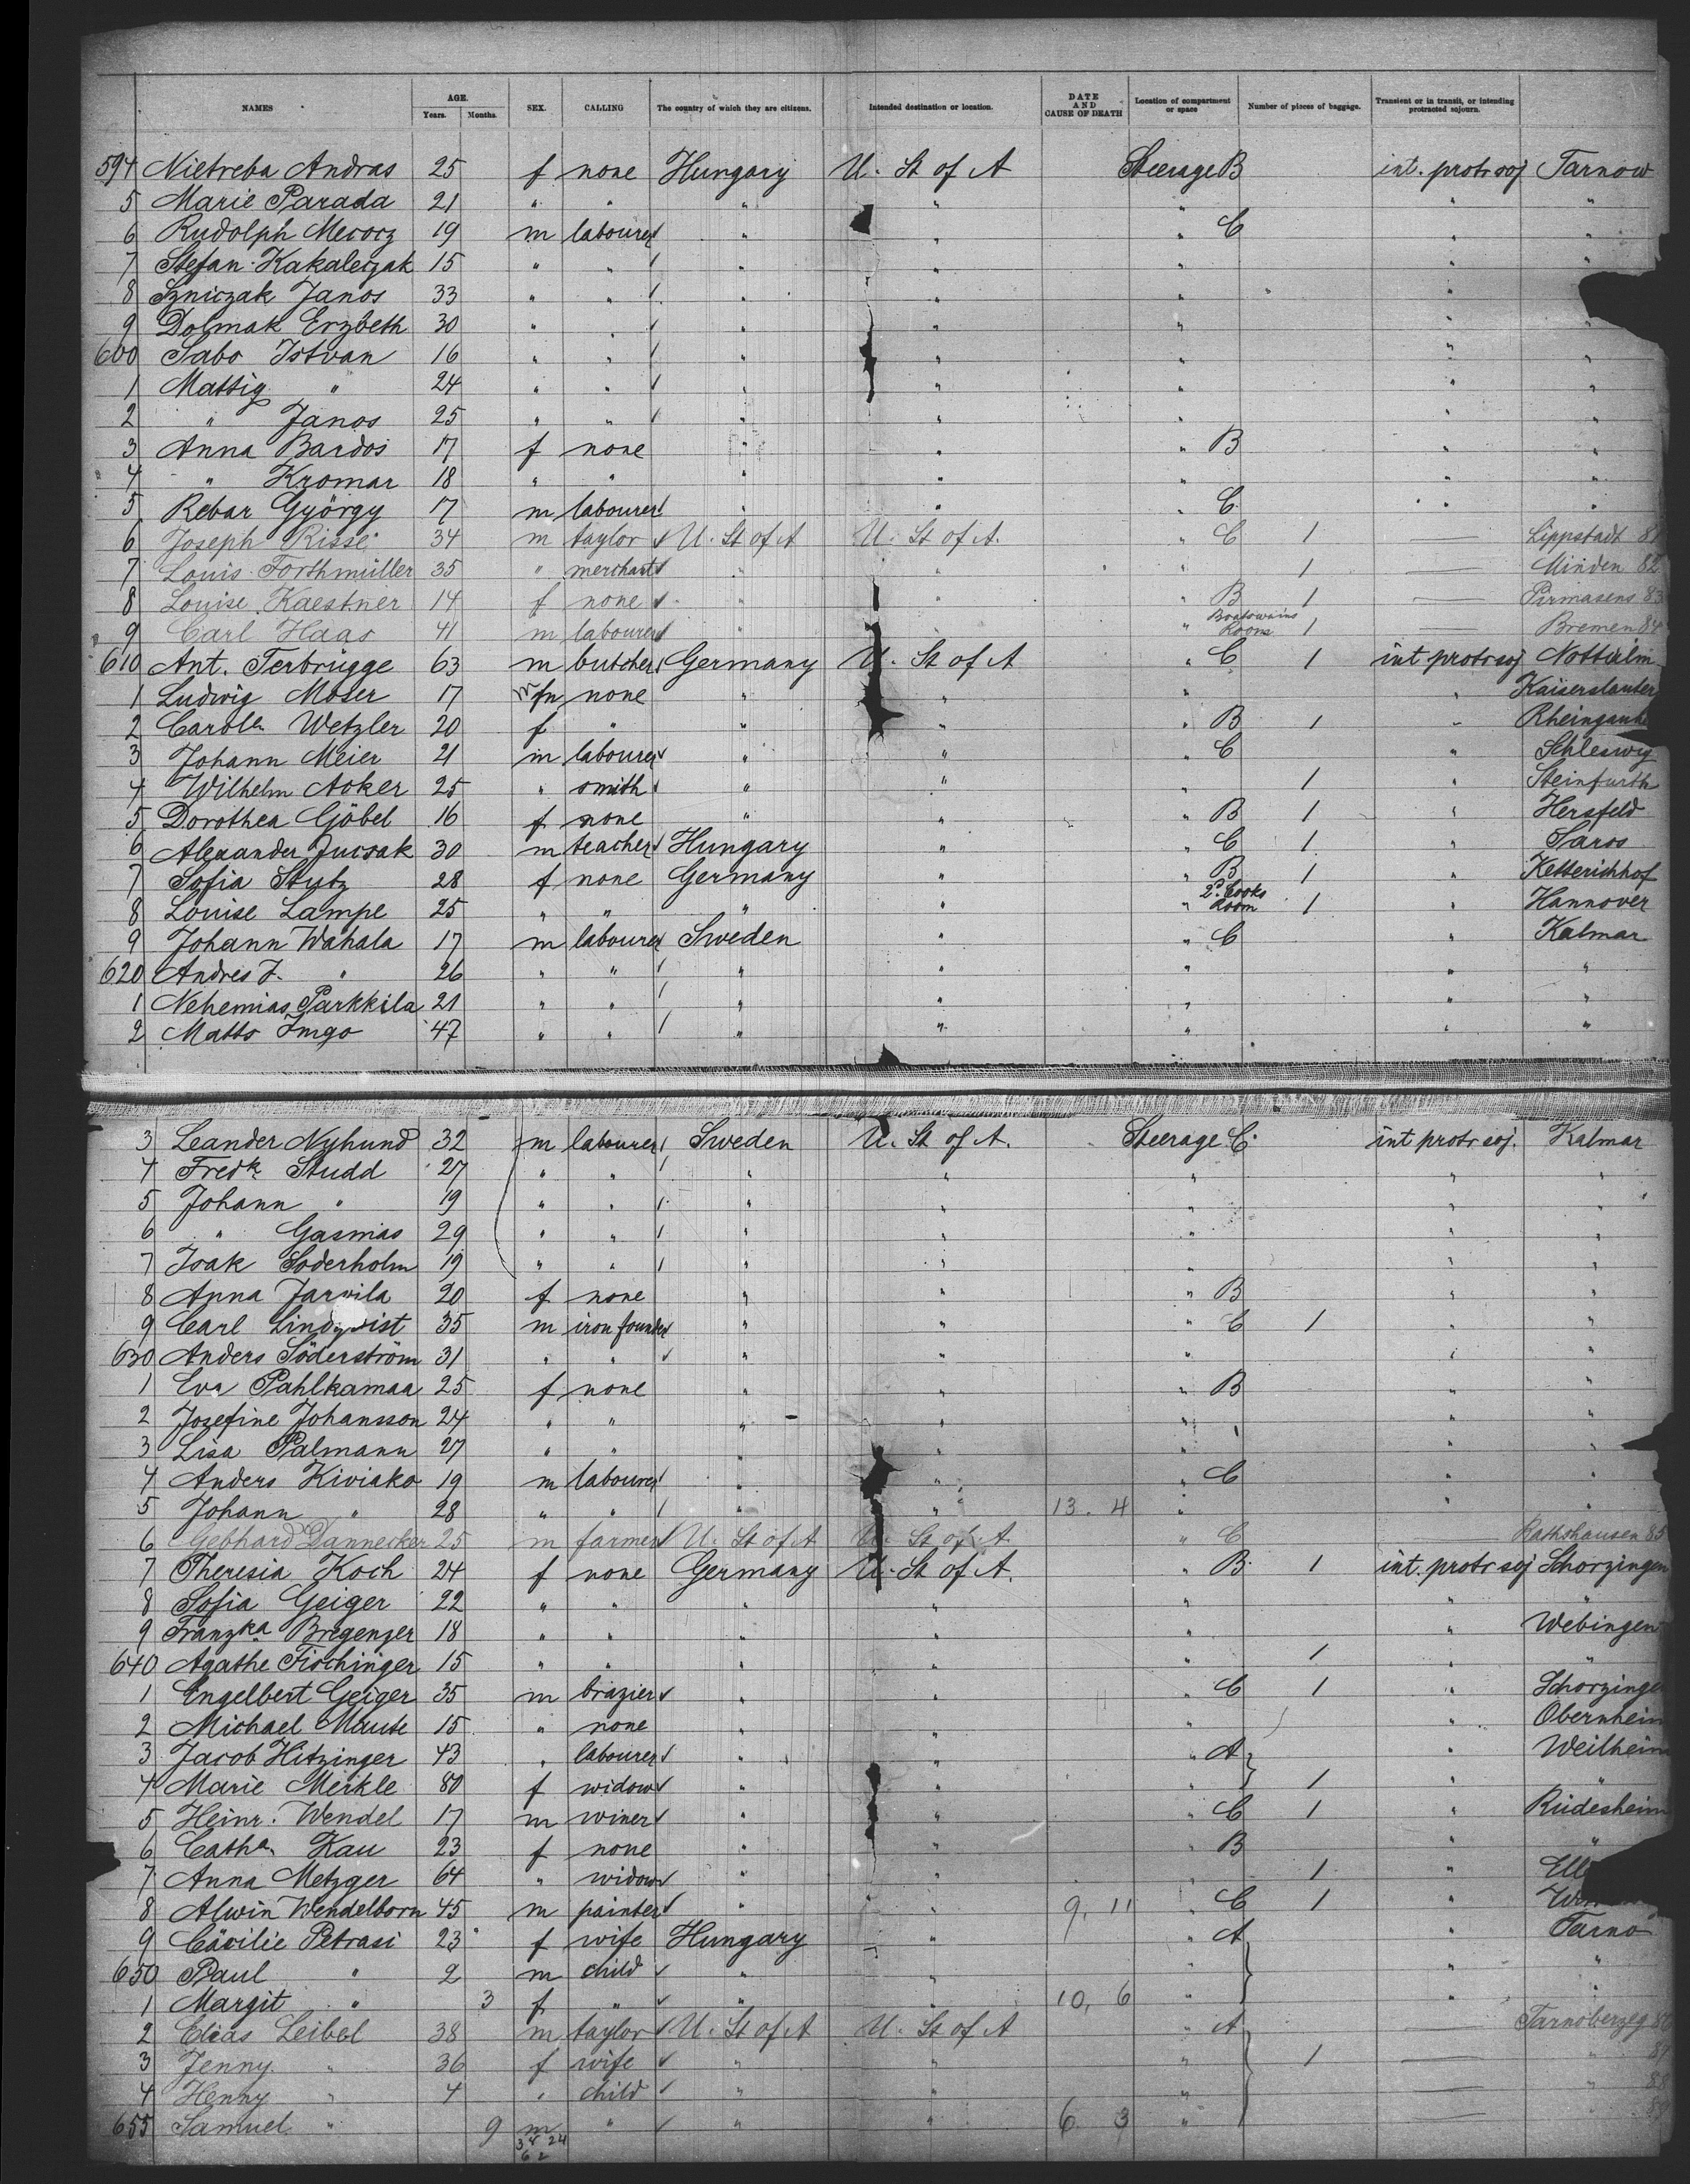 NAMES AGE. Years. Months. SEX. CALLING The country of which they are citizens. Intended destination or location. DATE AND CAUSE OF DEATH Location of compartment or space Number of pieces of baggage. Transient or in transit, or intending protracted sojourn.
594 Nietreba Andras 25 f none Hungary U. St of A Steerage B int. protr soj Tarnow
5 Marie Parada 21 " " " " " " "
6 Rudolph Mecorz 19 m labourer " " " C " "
7 Stefan Kakaleczak 15 " " " " " " "
8 Szniczak Janos 33 " " " " " "
9 Dolmak Erzbeth 30 " " " " " " "
600 Sabo Istvan 16 " " " " " " "
1 Mattig " 24 " " " " " " "
2 " Janos 25 " " " " " " "
3 Anna Bardos 17 f none " " " B " "
4 " Kromar 18 " " " " " " "
5 Rebar György 17 m labourer " " " C " "
6 Joseph Risse 34 m taylor U. St of A U. St of A. " C 1 — Lippstadt 81
7 Louis Forthmüller 35 " merchant " " " 1 — Minden 82
8 Louise Kaestner 14 f none " " " B 1 — Pirmasens 83
9 Carl Haas 41 m labourer " " " Boatswains Room 1 — Bremen 84
610 Ant. Terbrügge 63 m butcher Germany U. St of A " C 1 int protr soj Nottuln
1 Ludwig Moser 17 m none " " " " Kaiserslauter
2 Carole. Wetzler 20 f " " " " B 1 " Rheingauh
3 Johann Meier 21 m labourer " " " C " Schleswig
4 Wilhelm Acker 25 " smith " " " 1 " Steinfurth
5 Dorothea Göbel 16 f none " " " B 1 " Hersfeld
6 Alexander Jucsak 30 m teacher Hungary " " C 1 " Saros
7 Sofia Stutz 28 f none Germany " " B 1 " Ketterichhof
8 Louise Lampe 25 " " " " " 2d. Cooks Room 1 " Hannover
9 Johann Wahala 17 m labourer Sweden " " C " Kalmar
620 Andres J. " 26 " " " " " " "
1 Nehemias Parkkila 21 " " " " " " "
2 Matts Imgo 47 " " " " " " "
3 Leander Nyhund 32 m labourer Sweden U. St of A. Steerage C. int protr soj. Kalmar
4 Fredk. Studd 27 " " " " " " "
5 Johann " 19 " " " " " " "
6 " Gasmas 29 " " " " " " "
7 Isak Soderholm 19 " " " " " " "
8 Anna Jarvila 20 f none " " " B " "
9 Carl Lindqvist 35 m iron founder " " " C 1 " "
630 Anders Söderström 31 " " " " " " "
1 Eva Pahlkamaa 25 f none " " " B " "
2 Josefine Johansson 24 " " " " " " "
3 Lisa Palmann 27 " " " " " " "
4 Anders Kiviako 19 m labourer " " " C " "
5 Johann " 28 " " " " 13. 4 " " "
6 Gebhard Dannecker 25 m farmer U. St of A U. St of A " C — Rathshausen 85
7 Theresia Koch 24 f none Germany U. St of A. " B 1 int. protr soj Schorzingen
8 Sofia Geiger 22 " " " " " " "
9 Franzka. Bregenzer 18 " " " " " " Webingen
640 Agathe Fischinger 15 " " " " " 1 " "
1 Engelbert Geiger 35 m brazier " " " C 1 " Schorzinge
2 Michael Maute 15 " none " " " " Obernheim
3 Jacob Hitzinger 43 " labourer " " " A " Weilheim
4 Marie Meikle 80 f widow " " " 1 " "
5 Heinr. Wendel 17 m winer " " " C 1 " Rüdesheim
6 Catha. Kau 23 f none " " " B " "
7 Anna Metzger 64 " widow " " " 1 " Ell
8 Alwin Wendelborn 45 m painter " " 9, 11 " C 1 "
9 Cäcilie Petrasi 23 f wife Hungary " " A " Tarno
650 Paul " 2 m child " " " " "
1 Margit " 3 f " " " 10, 6 " " "
2 Elias Leibel 38 m taylor U. St of A U. St of A " A — Tarnoberzeg 86
3 Jenny " 36 f wife " " " 1 — " 87
4 Henny " 4 " child " " " — " 88
655 Samuel " 9 m " " " 6 3 " — " 89